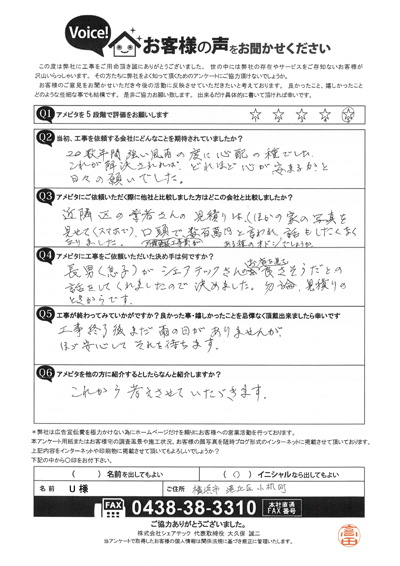 Voice!
お客様の声をお聞かせください
この度は弊社に工事をご用命頂き誠にありがとうございました。世の中には弊社の存在やサービスをご存知ないお客様が
沢山いらっしゃいます。その方たちに弊社をよく知って頂くためのアンケートにご協力頂けないでしょうか。
お客様のご意見をお聞かせいただき今後の活動に反映させていただきたいと考えております。良かったこと、嬉しかったこと
どのような些細な事でも結構です。是非ご協力お願い致します。出来るだけ具体的に書いて頂ければ幸いです。
Q1 アメピタを5段階で評価をお願いします
☆ ☆ ☆ ☆ ☆
Q2 当初、工事を依頼する会社にどんなことを期待されていましたか?
20数年間強い風雨の度に心配の種でした
これが解決されれば、どれほど心が安まるかと
日々の願いでした。
Q3 アメピタにご依頼いただく際に他社と比較しました方はどこの会社と比較しましたか?
近隣区の業者さんの見積りは、(ほかの家の写真を
見せて(スマホで)、口頭で数百万円と言われ、話もしたくなく
なりました。
Q4 アメピタに工事をご依頼いただいた決め手は何ですか?
長男(息子)がシェアテックさんが良さそうだとの
話をしてくれましたので決めました。勿論、見積りの
ときからです。
Q5 工事が終わってみていかがですか?良かった事・嬉しかったことを忌憚なく頂戴出来ましたら幸いです
工事終了後まだ雨の日がありませんが
ほぼ安心してそれを待ちます。
Q6 アメピタを他の方に紹介するとしたらなんと紹介しますか?
これから考えさせていただきます。
*弊社は広告宣伝費を極力かけない為にホームページだけを頼りにお客様への営業活動を行っております。
本アンケート用紙またはお客様宅の調査風景や施工状況、お客様の顔写真を随時ブログ形式のインターネットに掲載させて頂いております。
上記内容をインターネットや印刷物に掲載させて頂いてもよろしいでしょうか?
下記の中から〇印をお付下さい。
( ) 名前を出してもよい
( 〇 ) イニシャルなら出してもよい
名前 U様 ご住所 横浜市 港北区小机町
FAX 0438-38-3310 本社直通 FAX番号
ご協力ありがとうございました。
株式会社シェアテック 代表取締役 大久保 誠二
当アンケートで取得したお客様の個人情報は関係法規に基づき厳正に管理いたします。